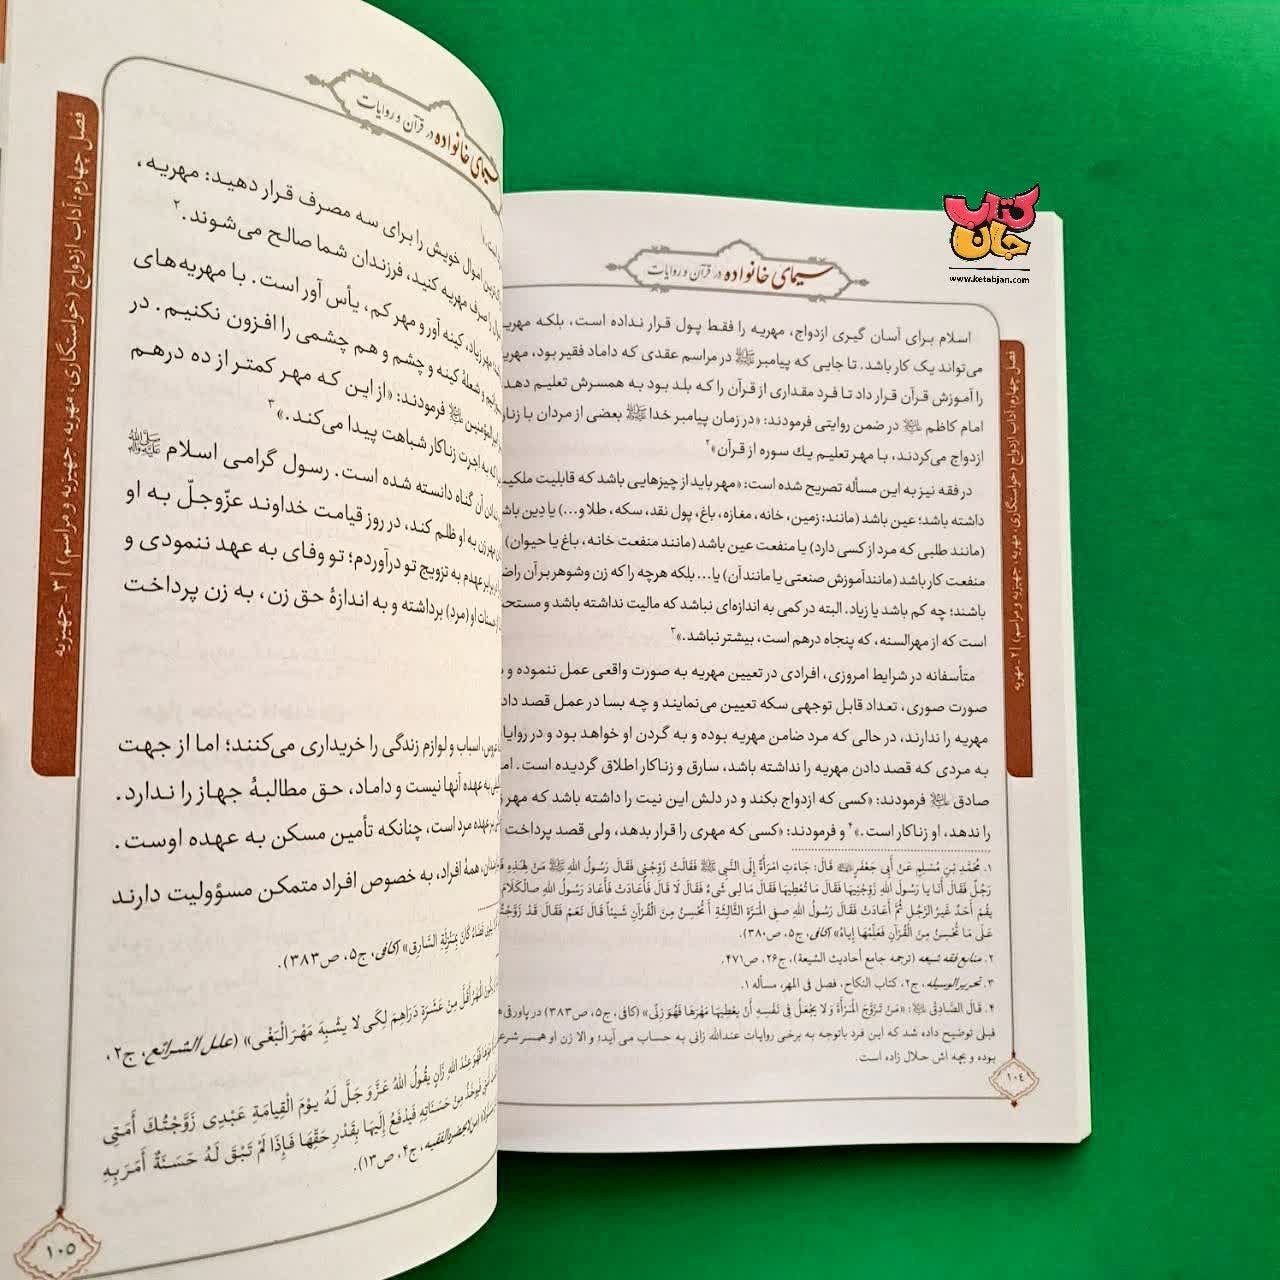 کتاب
جان
www.ketabjan.com
سیمای خانواده در قرآن و روایات
فصل چهارم: آداب ازدواج (خواستگاری، مهریه، جهیزیه و مراسم) | ۲ـ مهریه
اسلام برای آسان گیری ازدواج، مهریه را فقط پول قرار نداده است، بلکه مهریه
می‌تواند یک کار باشد. تا جایی که پیامبر ﷺ در مراسم عقدی که داماد فقیر بود، مهریه
را آموزش قرآن قرار داد تا فرد مقداری از قرآن را که بلد بود به همسرش تعلیم دهد
امام کاظم در ضمن روایتی فرمودند: «در زمان پیامبر خدا ﷺ بعضی از مردان با زنان
ازدواج می‌کردند، با مهر تعلیم یك سوره از قرآن»۲
در فقه نیز به این مسأله تصریح شده است: «مهر باید از چیزهایی باشد که قابلیت ملکیت
داشته باشد؛ عین باشد (مانند: زمین، خانه، مغازه، باغ، پول نقد، سکه، طلا و...) یا دِین باشد
(مانند طلبی که مرد از کسی دارد) یا منفعت عین باشد (مانند منفعت خانه، باغ یا حیوان)
منفعت کار باشد (مانند آموزش صنعتی یا مانند آن) یا... بلکه هرچه را که زن و شوهر بر آن راضی
باشند؛ چه کم باشد یا زیاد. البته در کمی به اندازه‌ای نباشد که مالیت نداشته باشد و مستحب
است که از مهرالسنه، که پنجاه درهم است، بیشتر نباشد.»۳
متأسفانه در شرایط امروزی، افرادی در تعیین مهریه به صورت واقعی عمل ننموده و
صورت صوری، تعداد قابل توجهی سکه تعیین می‌نمایند و چه بسا در عمل قصد دادن
مهریه را ندارند، در حالی که مرد ضامن مهریه بوده و به گردن او خواهد بود و در روایات
به مردی که قصد دادن مهریه را نداشته باشد، سارق و زناکار اطلاق گردیده است. امام
صادق فرمودند: «کسی که ازدواج بکند و در دلش این نیت را داشته باشد که مهر
را ندهد، او زناکار است.»۴ و فرمودند: «کسی که مهری را قرار بدهد، ولی قصد پرداخت
۱. مُحَمَّدِ بْنِ مُسْلِمٍ عَنْ أَبِي جَعْفَرٍ قَالَ: جَاءَتِ امْرَأَةٌ إِلَى النَّبِيِّ ﷺ فَقَالَتْ زَوِّجْنِي فَقَالَ رَسُولُ اللهِ ﷺ مَنْ لِهَذِهِ
رَجُلٌ فَقَالَ أَنَا يَا رَسُولَ اللهِ زَوِّجْنِيهَا فَقَالَ مَا تُعْطِيهَا فَقَالَ مَا لِي شَيْءٌ فَقَالَ لَا قَالَ فَأَعَادَتْ فَأَعَادَ رَسُولُ اللهِ الْكَلَامَ
يَقُمْ أَحَدٌ غَيْرُ الرَّجُلِ ثُمَّ أَعَادَتْ فَقَالَ رَسُولُ اللهِ فِي الْمَرَّةِ الثَّالِثَةِ أَ تُحْسِنُ مِنَ الْقُرْآنِ شَيْئاً قَالَ نَعَمْ فَقَالَ قَدْ زَوَّجْتُكَهَا
عَلَى مَا تُحْسِنُ مِنَ الْقُرْآنِ فَعَلِّمْهَا إِيَّاهُ» (کافی، ج۵، ص۳۸۰).
۲. منابع فقه شیعه (ترجمه جامع أحادیث الشیعة)، ج۲۶، ص۴۷۱.
۳. تحریرالوسیله، ج۲، کتاب النکاح، فصل فی المهر، مسأله ۱.
۴. قَالَ الصَّادِقُ: «مَنْ تَزَوَّجَ الْمَرْأَةَ وَ لَا يَجْعَلُ فِي نَفْسِهِ أَنْ يُعْطِيَهَا مَهْرَهَا فَهُوَ زِنًى» (کافی، ج۵، ص۳۸۳) در پاورقی
قبلی توضیح داده شد که این فرد باتوجه به برخی روایات عندالله زانی به حساب می آید؛ و الا زن او همسر شرعی
بوده و بچه اش حلال زاده است.
۱۰۴
سیمای خانواده در قرآن و روایات
فصل چهارم: آداب ازدواج (خواستگاری، مهریه، جهیزیه و مراسم) | ۳ـ جهیزیه
اموال خویش را برای سه مصرف قرار دهید: مهریه،
را صرف مهریه کنید، فرزندان شما صالح می‌شوند.۲
مهر زیاد، کینه آور و مهر کم، یأس آور است. با مهریه‌های
و شعلۀ کینه و چشم و هم چشمی را افزون نکنیم. در
فرمودند: «از این که مهر کمتر از ده درهم
که به اجرت زناکار شباهت پیدا می‌کند.»۳
آن گناه دانسته شده است. رسول گرامی اسلام ﷺ
مهر زن به او ظلم کند، در روز قیامت خداوند عزّوجلّ به او
عهدم به تزویج تو درآوردم؛ تو وفای به عهد ننمودی و
حسنات او (مرد) برداشته و به اندازۀ حق زن، به زن پرداخت
اسباب و لوازم زندگی را خریداری می‌کنند؛ اما از جهت
به عهده آنها نیست و داماد، حق مطالبۀ جهاز را ندارد.
بر عهده مرد است، چنانکه تأمین مسکن به عهده اوست.
همۀ افراد، به خصوص افراد متمکن مسؤولیت دارند
كَانَ بِمَنْزِلَةِ السَّارِقِ» (کافی، ج۵، ص۳۸۳).
الْمَهْرُ أَقَلَّ مِنْ عَشَرَةِ دَرَاهِمَ لِكَيْ لَا يَشْبِهَ مَهْرَ الْبَغْيِ» (علل الشرائع، ج۲،
فَهُوَ عِنْدَ اللهِ زَانٍ يَقُولُ اللهُ عَزَّ وَ جَلَّ لَهُ يَوْمَ الْقِيَامَةِ عَبْدِي زَوَّجْتُكَ أَمَتِي
مِنْ حَسَنَاتِهِ فَيُدْفَعُ إِلَيْهَا بِقَدْرِ حَقِّهَا فَإِذَا لَمْ تَبْقَ لَهُ حَسَنَةٌ أَمَرَ بِهِ
ج۴، ص۱۳).
۱۰۵